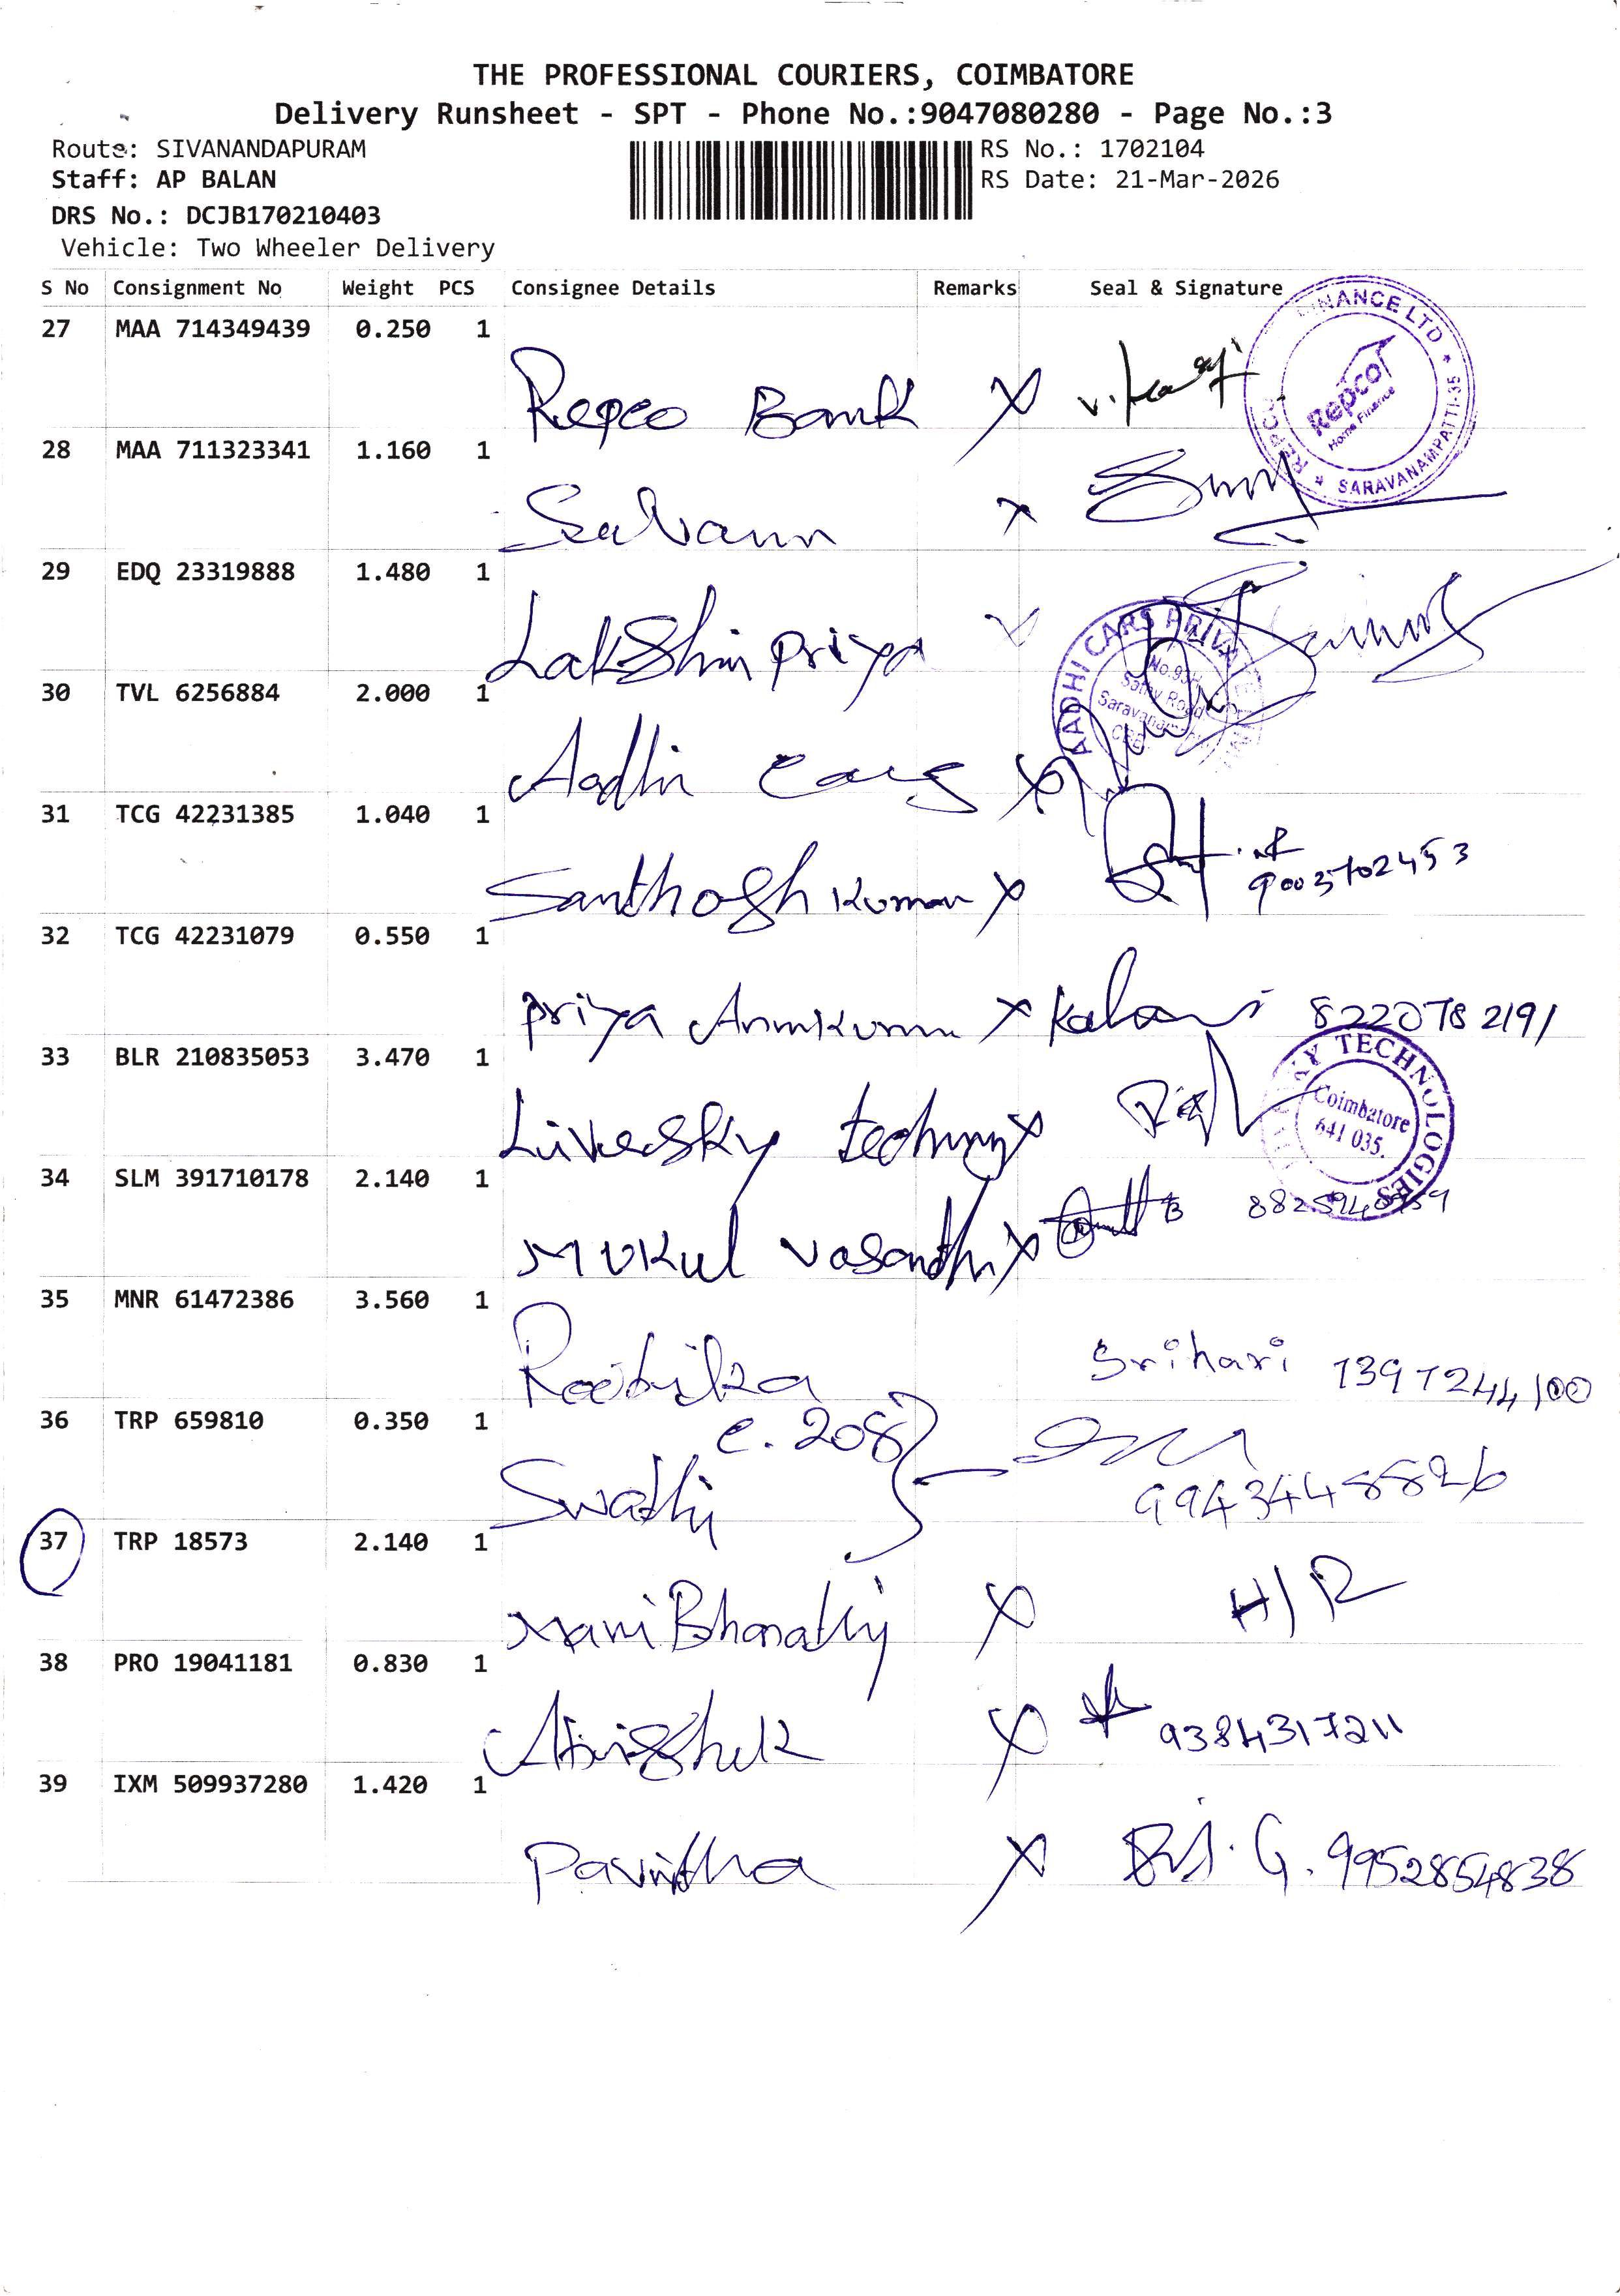 THE PROFESSIONAL COURIERS, COIMBATORE
Delivery Runsheet - SPT - Phone No.:9047080280 - Page No.:3
Route: SIVANANDAPURAM
RS No.: 1702104
Staff: AP BALAN
RS Date: 21-Mar-2026
DRS No.: DCJB170210403
Vehicle: Two Wheeler Delivery
S No Consignment No Weight PCS Consignee Details Remarks Seal & Signature
27 MAA 714349439 0.250 1
Repco Bank X
REPCO FINANCE LTD * SARAVANAMPATTI-35 *
Repco
Home Finance
28 MAA 711323341 1.160 1
X
29 EDQ 23319888 1.480 1
Lakshmi Priya X
30 TVL 6256884 2.000 1
AADHI CARS PRIVATE
Aadhi Cars X
31 TCG 42231385 1.040 1
Santhosh Kumar X
9003702453
32 TCG 42231079 0.550 1
Priya X 8220782191
33 BLR 210835053 3.470 1
TECHNOLOGIES
Coimbatore
641 035.
X
34 SLM 391710178 2.140 1
Mukul Vasanth X
35 MNR 61472386 3.560 1
Srihari 7397244100
36 TRP 659810 0.350 1
C. 208
Swathy
9943448826
37 TRP 18573 2.140 1
Mani Bharathy X H/R
38 PRO 19041181 0.830 1
Abishek X 9384317211
39 IXM 509937280 1.420 1
Pavithra X G. 9952854838